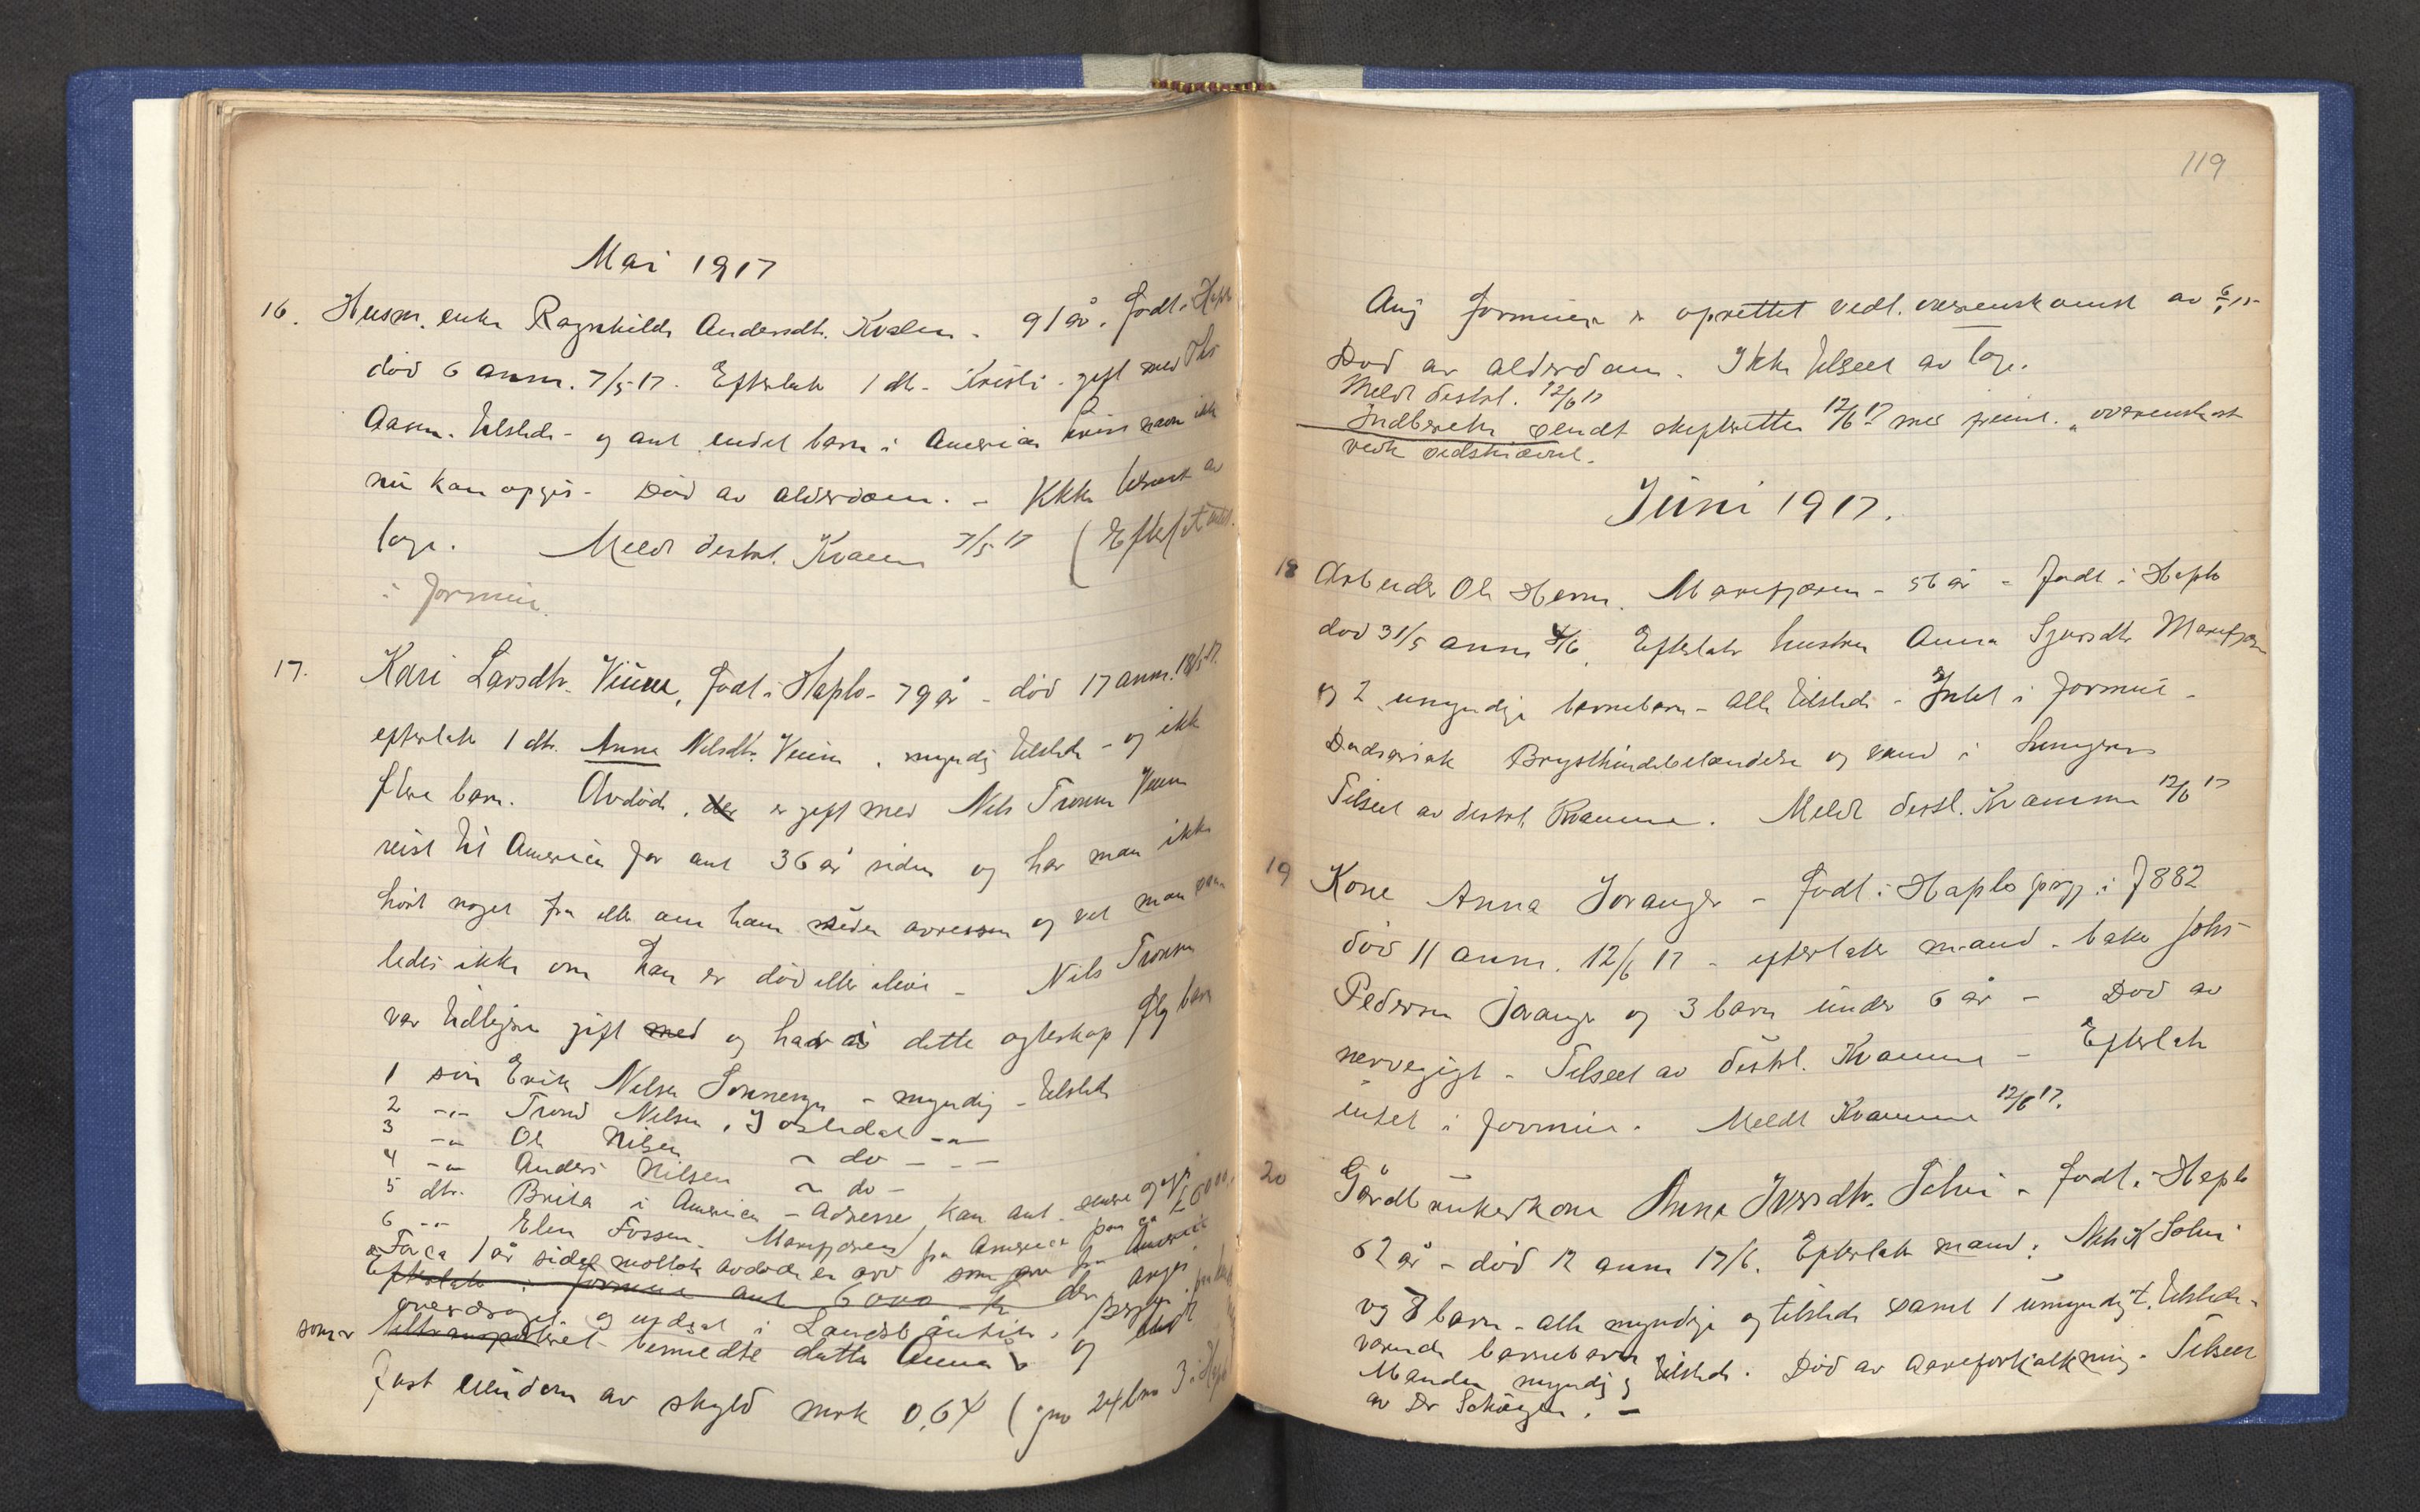 Mai 1917
16. Husm. enke Ragnhilde Andersdtr. Kvalen - 91 år. Født i Hafslo
død 6 anm. 7/5-17. Efterlater 1 dtr. Kristi - gift med
Aasen. tilstede - og ant. endel barn i Amerika hvis navn ikke
nu kan opgis - Død av alderdom. - Ikke tilseet av
læge. Meldt distrl. Kvamme 7/5 17 (Efterlat intet
i formue.
17. Kari Larsdtr. Venum, født i Hafslo - 79 år - død 17 anm. 18/5-17.
efterlater 1 dtr. Anna Nilsdtr. Venum, myndig tilstede - og ikke
flere barn. Avdøde, der er gift med Nils Tronsen Venum
reist til Amerika for ant 36 år siden og har man ikke
hørt noget fra eller om ham siden avreisen og vet man saa-
ledes ikke om han er død eller ilive - Nils Tronsen
var tidligere gift med og hadde i dette egteskap flg barn
1 søn Erik Nilsen Sønnesyn - myndig - tilstede
2 -"- Trond Nilsen, Jostedal -"-
3 -"- Ole Nilsen ~ do - - -
4 -"- Anders Nilsen ~ do -
5 dtr. Brita i Amerika - Adresse kan ant. senere opgis
6 -"- Elen Fossen - Marifjøren
For ca 1 år siden mottok avdøde en arv fra Amerika paa ca £ 6000,
Efterlater i formue ant 6000 kr
overdraget og indsat i Landsbanken,
som er Tiltransporteret benævnte datter Anna og
Fast eiendom av skyld mrk 0,64 (gno 24 bno 3 i Hafslo
119
Ang formuen er oprettet vedl. overenskomst av
Død av alderdom. Ikke tilseet av læge.
Meldt distrl. 12/6 17
Indberetn sendt skifteretten 12/6 17 med "overenskomst
Juni 1917.
18 Arbeider Ole Herm. Marifjøren - 56 år - født i Hafslo
død 31/5 anm 4/6. Efterlater hustru Anna Sjursdtr Marifjøren
og 2 umyndige barnebarn - alle tilstede - Intet i formue -
Dødsårsak Brysthindebetændelse og vand i lungerne
Tilseet av distrl. Kvamme. Meldt distl. Kvamme 12/6 17
19 Kone Anna Joranger - født i Hafslo prgj. i 1882
død 11 anm. 12/6 17 - efterlater mand - baker Johs
Pedersen Joranger og 3 barn under 6 år - Død av
nervegigt - Tilseet av distrl. Kvamme - Efterlater
intet i formue. Meldt Kvamme 12/6 17.
20 Gårdbrukerkone Anna Iversdtr. Solvi - født i Hafslo
62 år - død 12 anm 17/6. Efterlater mand: Nils K Solvi
og 8 barn - alle myndige og tilstede samt 1 umyndigt, tilstede-
værende barnebarn tilstede. Død av Aareforkalkning. Tilseet
Manden myndig og
av Dr Schøyen. -